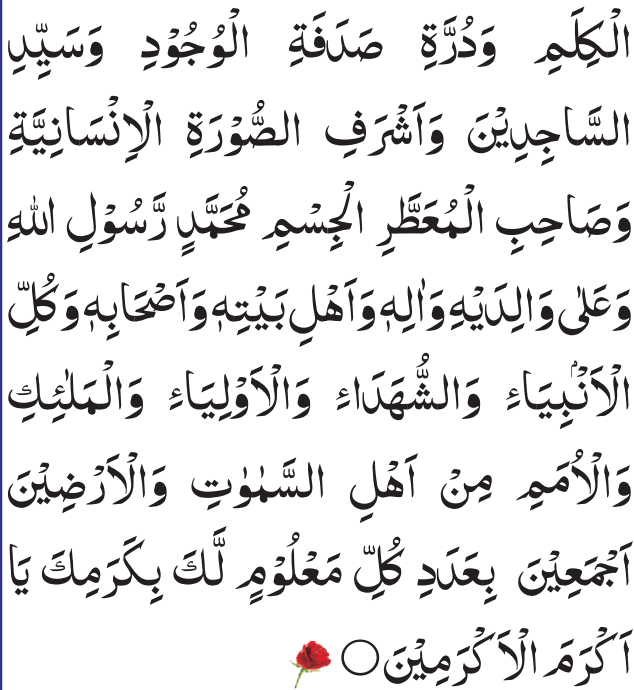 الْكِلَمِ وَدُرَّةِ صَدَفَةِ الْوُجُوْدِ وَسَيِّدِ
السَّاجِدِيْنَ وَاَشْرَفِ الصُّوْرَةِ الْاِنْسَانِيَّةِ
وَصَاحِبِ الْمُعَطَّرِ الْجِسْمِ مُحَمَّدٍ رَّسُوْلِ اللهِ
وَعَلٰى وَالِدَيْهِ وَاٰلِهٖ وَاَهْلِ بَيْتِهٖ وَاَصْحَابِهٖ وَكُلِّ
الْاَنْۢبِيَاءِ وَالشُّهَدَاءِ وَالْاَوْلِيَاءِ وَالْمَلٰئِكِ
وَالْاُمَمِ مِنْ اَهْلِ السَّمٰوٰتِ وَالْاَرْضِيْنَ
اَجْمَعِيْنَ بِعَدَدِ كُلِّ مَعْلُوْمٍ لَّكَ بِكَرَمِكَ يَا
اَكْرَمَ الْاَكْرَمِيْنَ○